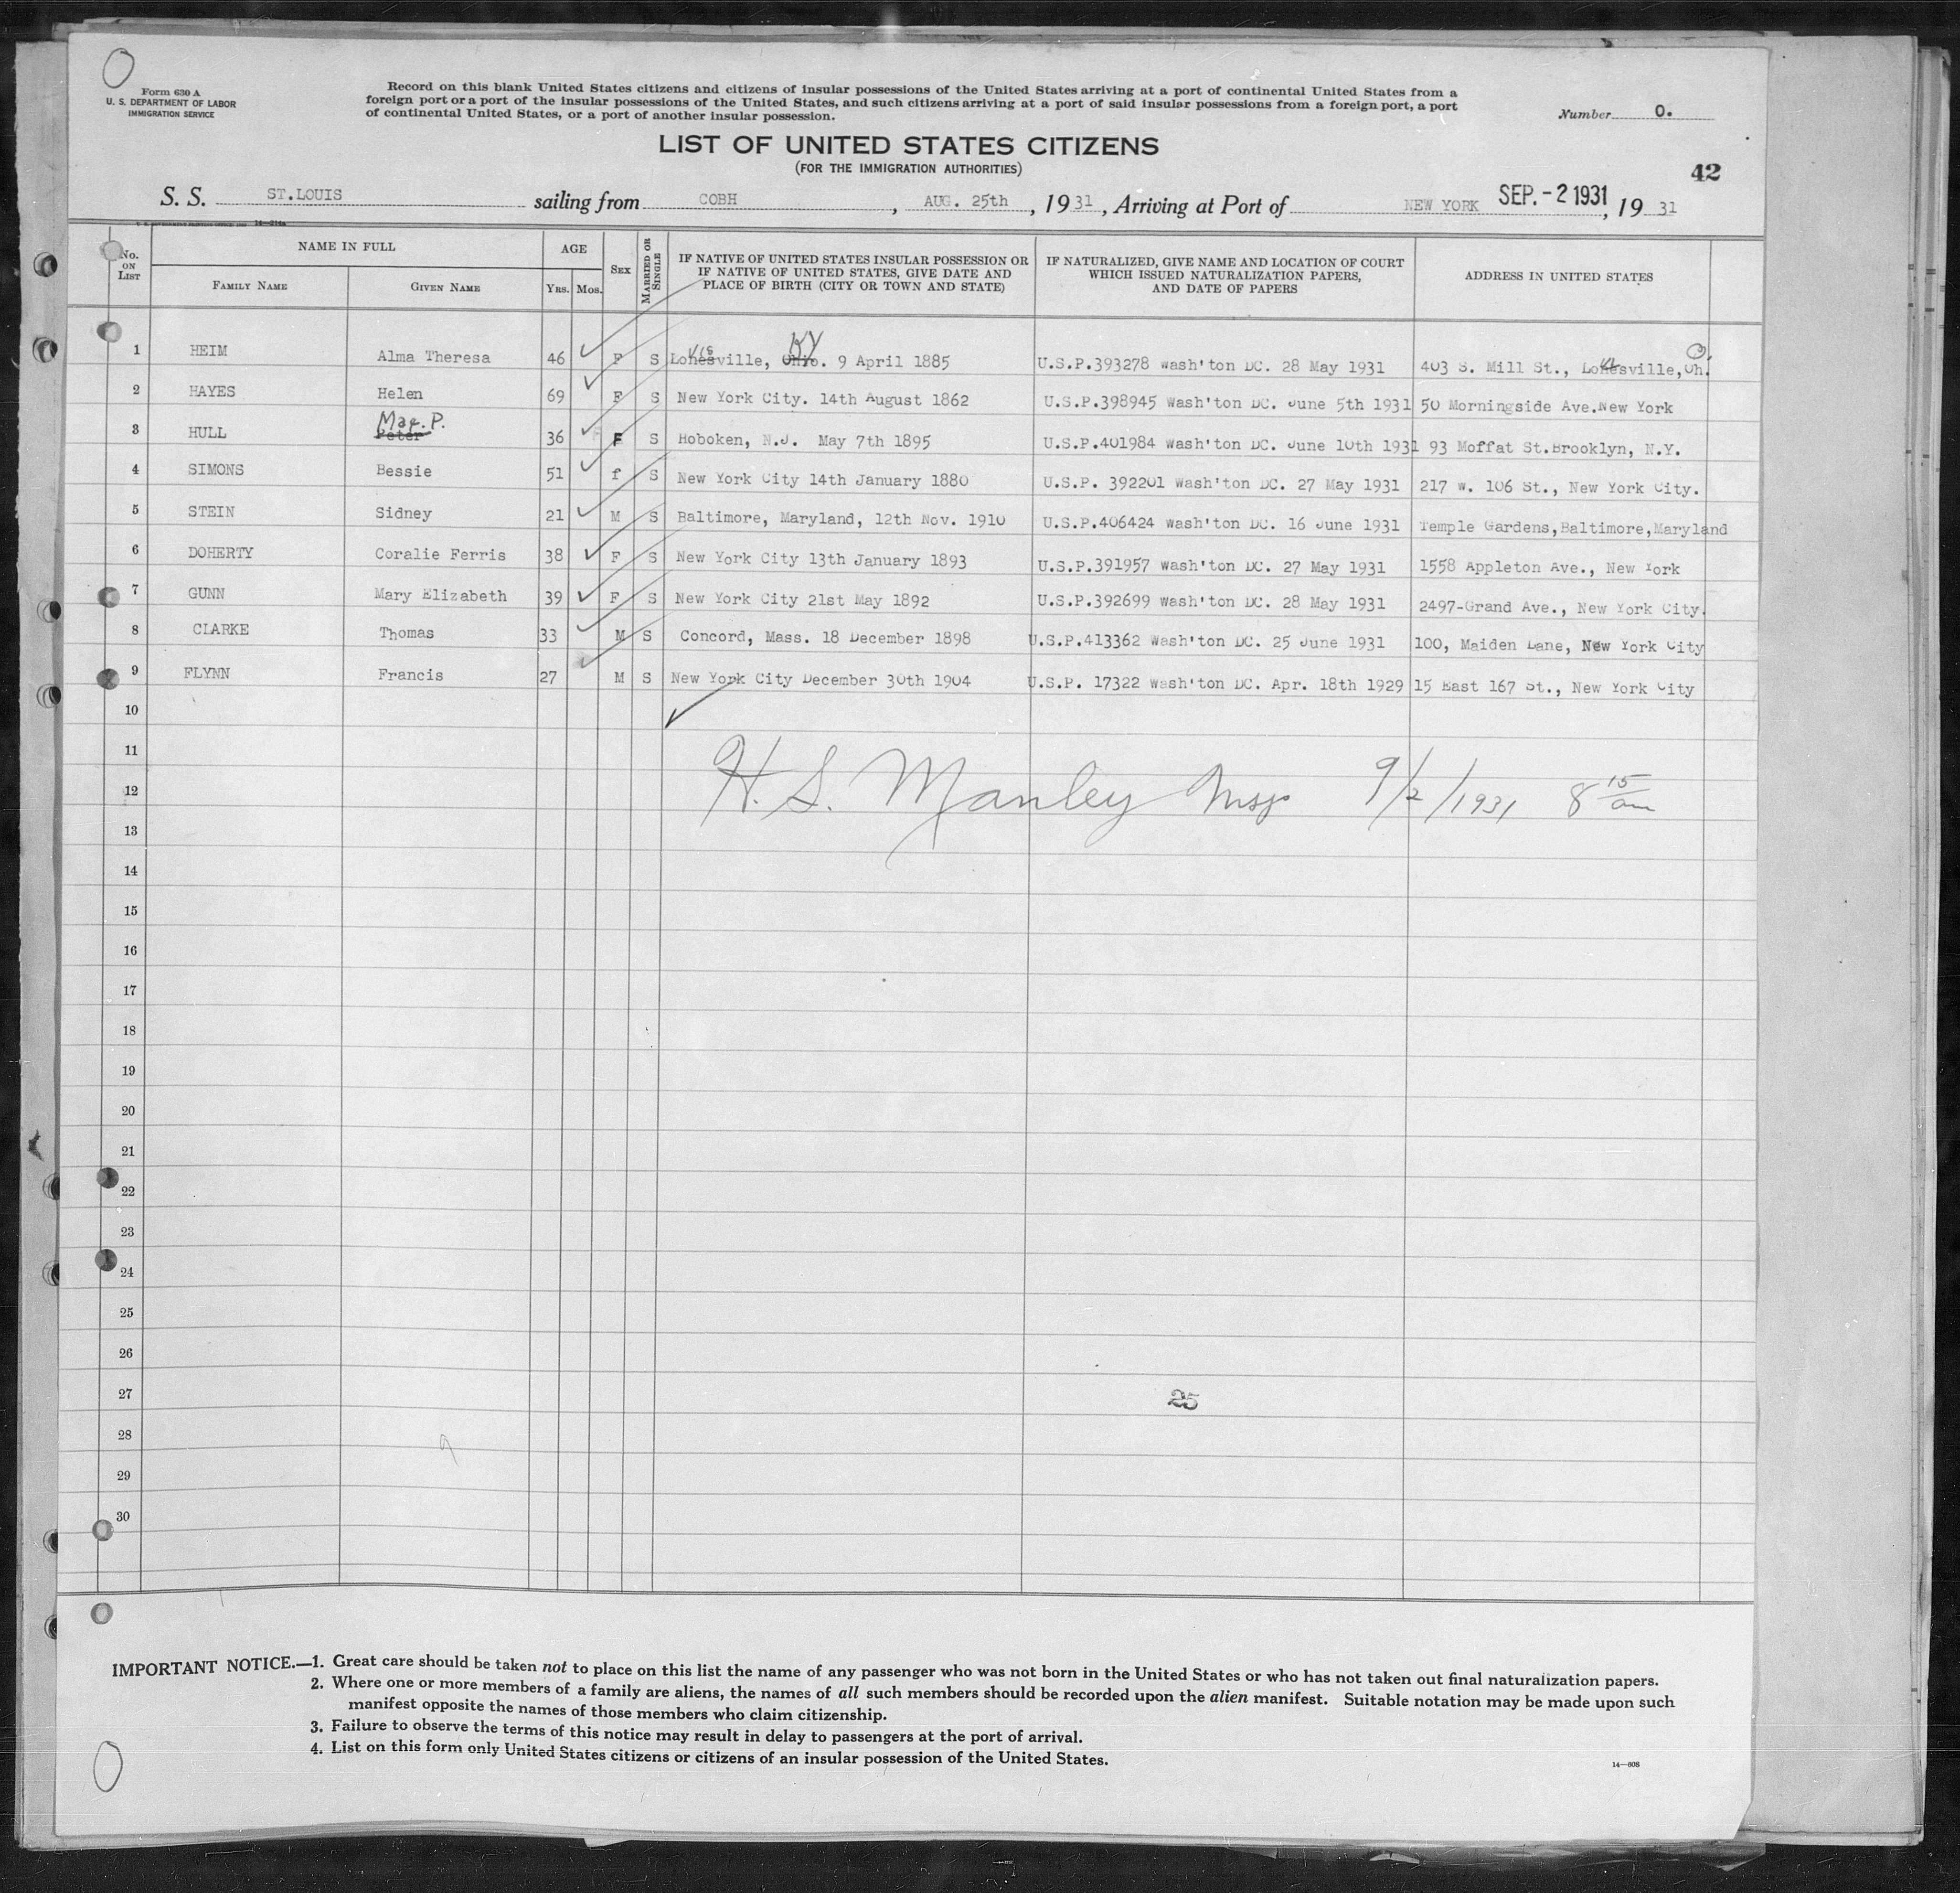 Form 630 A
U. S. DEPARTMENT OF LABOR
IMMIGRATION SERVICE
Record on this blank United States citizens and citizens of insular possessions of the United States arriving at a port of continental United States from a
foreign port or a port of the insular possessions of the United States, and such citizens arriving at a port of said insular possessions from a foreign port, a port
of continental United States, or a port of another insular possession.
Number 0.
LIST OF UNITED STATES CITIZENS
(FOR THE IMMIGRATION AUTHORITIES)
42
S. S. ST.LOUIS sailing from COBH, AUG. 25th, 1931, Arriving at Port of NEW YORK SEP. -2 1931, 19 31
No. ON LIST NAME IN FULL FAMILY NAME GIVEN NAME AGE YRS. MOS. SEX MARRIED OR SINGLE IF NATIVE OF UNITED STATES INSULAR POSSESSION OR IF NATIVE OF UNITED STATES, GIVE DATE AND PLACE OF BIRTH (CITY OR TOWN AND STATE) IF NATURALIZED, GIVE NAME AND LOCATION OF COURT WHICH ISSUED NATURALIZATION PAPERS, AND DATE OF PAPERS ADDRESS IN UNITED STATES
1 HEIM Alma Theresa 46 F S Lonesville, Ohio. KY 9 April 1885 U.S.P.393278 Wash'ton DC. 28 May 1931 403 S. Mill St., Lonesville, Oh.
2 HAYES Helen 69 F S New York City. 14th August 1862 U.S.P.398945 Wash'ton DC. June 5th 1931 50 Morningside Ave.New York
3 HULL Peter Mae. P. 36 F S Hoboken, N.J. May 7th 1895 U.S.P.401984 Wash'ton DC. June 10th 1931 93 Moffat St.Brooklyn, N.Y.
4 SIMONS Bessie 51 f S New York City 14th January 1880 U.S.P. 392201 Wash'ton DC. 27 May 1931 217 W. 106 St., New York City.
5 STEIN Sidney 21 M S Baltimore, Maryland, 12th Nov. 1910 U.S.P.406424 Wash'ton DC. 16 June 1931 Temple Gardens,Baltimore,Maryland
6 DOHERTY Coralie Ferris 38 F S New York City 13th January 1893 U.S.P.391957 Wash'ton DC. 27 May 1931 1558 Appleton Ave., New York
7 GUNN Mary Elizabeth 39 F S New York City 21st May 1892 U.S.P.392699 Wash'ton DC. 28 May 1931 2497-Grand Ave., New York City.
8 CLARKE Thomas 33 M S Concord, Mass. 18 December 1898 U.S.P.413362 Wash'ton DC. 25 June 1931 100, Maiden Lane, New York City
9 FLYNN Francis 27 M S New York City December 30th 1904 U.S.P. 17322 Wash'ton DC. Apr. 18th 1929 15 East 167 St., New York City
10
11
12 H. S. Manley Insp 9/2/1931 8 15 am
13
14
15
16
17
18
19
20
21
22
23
24
25
26
27 25
28
29
30
IMPORTANT NOTICE.—1. Great care should be taken not to place on this list the name of any passenger who was not born in the United States or who has not taken out final naturalization papers.
2. Where one or more members of a family are aliens, the names of all such members should be recorded upon the alien manifest. Suitable notation may be made upon such
manifest opposite the names of those members who claim citizenship.
3. Failure to observe the terms of this notice may result in delay to passengers at the port of arrival.
4. List on this form only United States citizens or citizens of an insular possession of the United States.
14—608